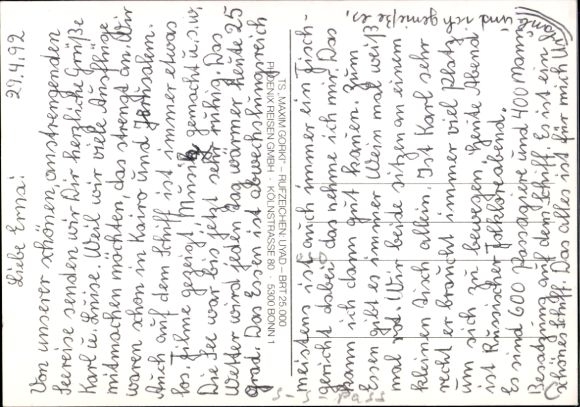 22.4.92
Liebe Erna!
Von unserer schönen, anstrengenden
Seereise senden wir Dir herzliche Grüße
Karl u. Luise. Weil wir viele Ausflüge
mitmachen möchten das strengt an. Wir
waren schon in Kairo und Jerusalem.
Auch auf dem Schiff ist immer etwas
los. Filme gezeigt Musik gemacht u.s.w.
Die See war bis jetzt sehr ruhig. Das
Wetter wird jeden Tag wärmer heute 25
grad. Das Essen ist abwechslungsreich
TS „MAXIM GORKI“ – RUFZEICHEN: UVAD – BRT 25 000
PHOENIX REISEN GMBH · KÖLNSTRASSE 80 · 5300 BONN 1
meistens ist auch immer ein Fisch-
gericht dabei das nehme ich mir. Das
kann ich dann gut kauen. Zum
Essen gibt es immer Wein mal weiß
mal rot. Wir beide sitzen an einem
kleinen Tisch allein. Ist Karl sehr
recht er braucht immer viel Platz
um sich zu bewegen. Heute Abend
ist Russischer Folkloreabend.
es sind 600 Passagiere und 400 Mann
Besatzung auf dem Schiff. Es ist ein
schönes Schiff. Das alles ist für mich Urlaub
und ich genieße es.